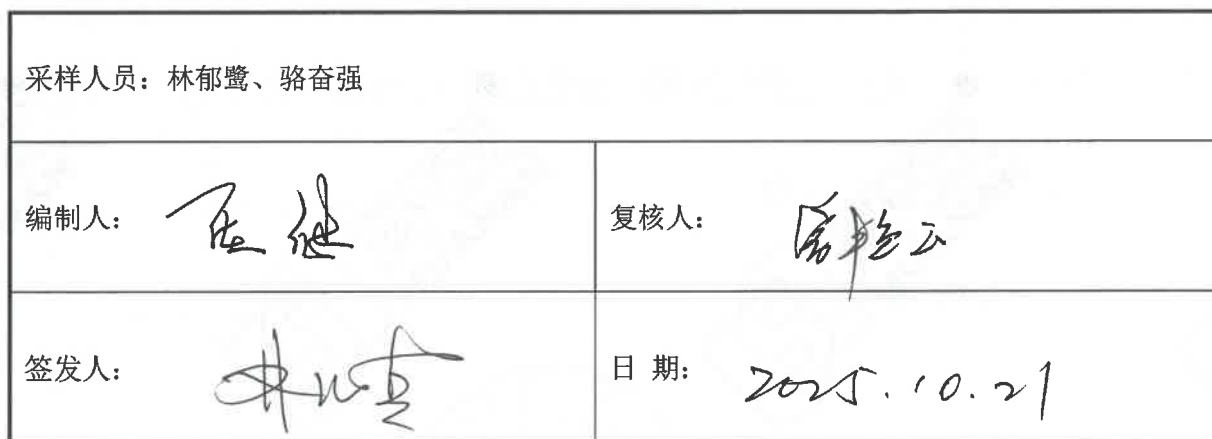 采样人员：林郁鹭、骆奋强
编制人：
复核人：
签发人：
日 期： 2025.10.21